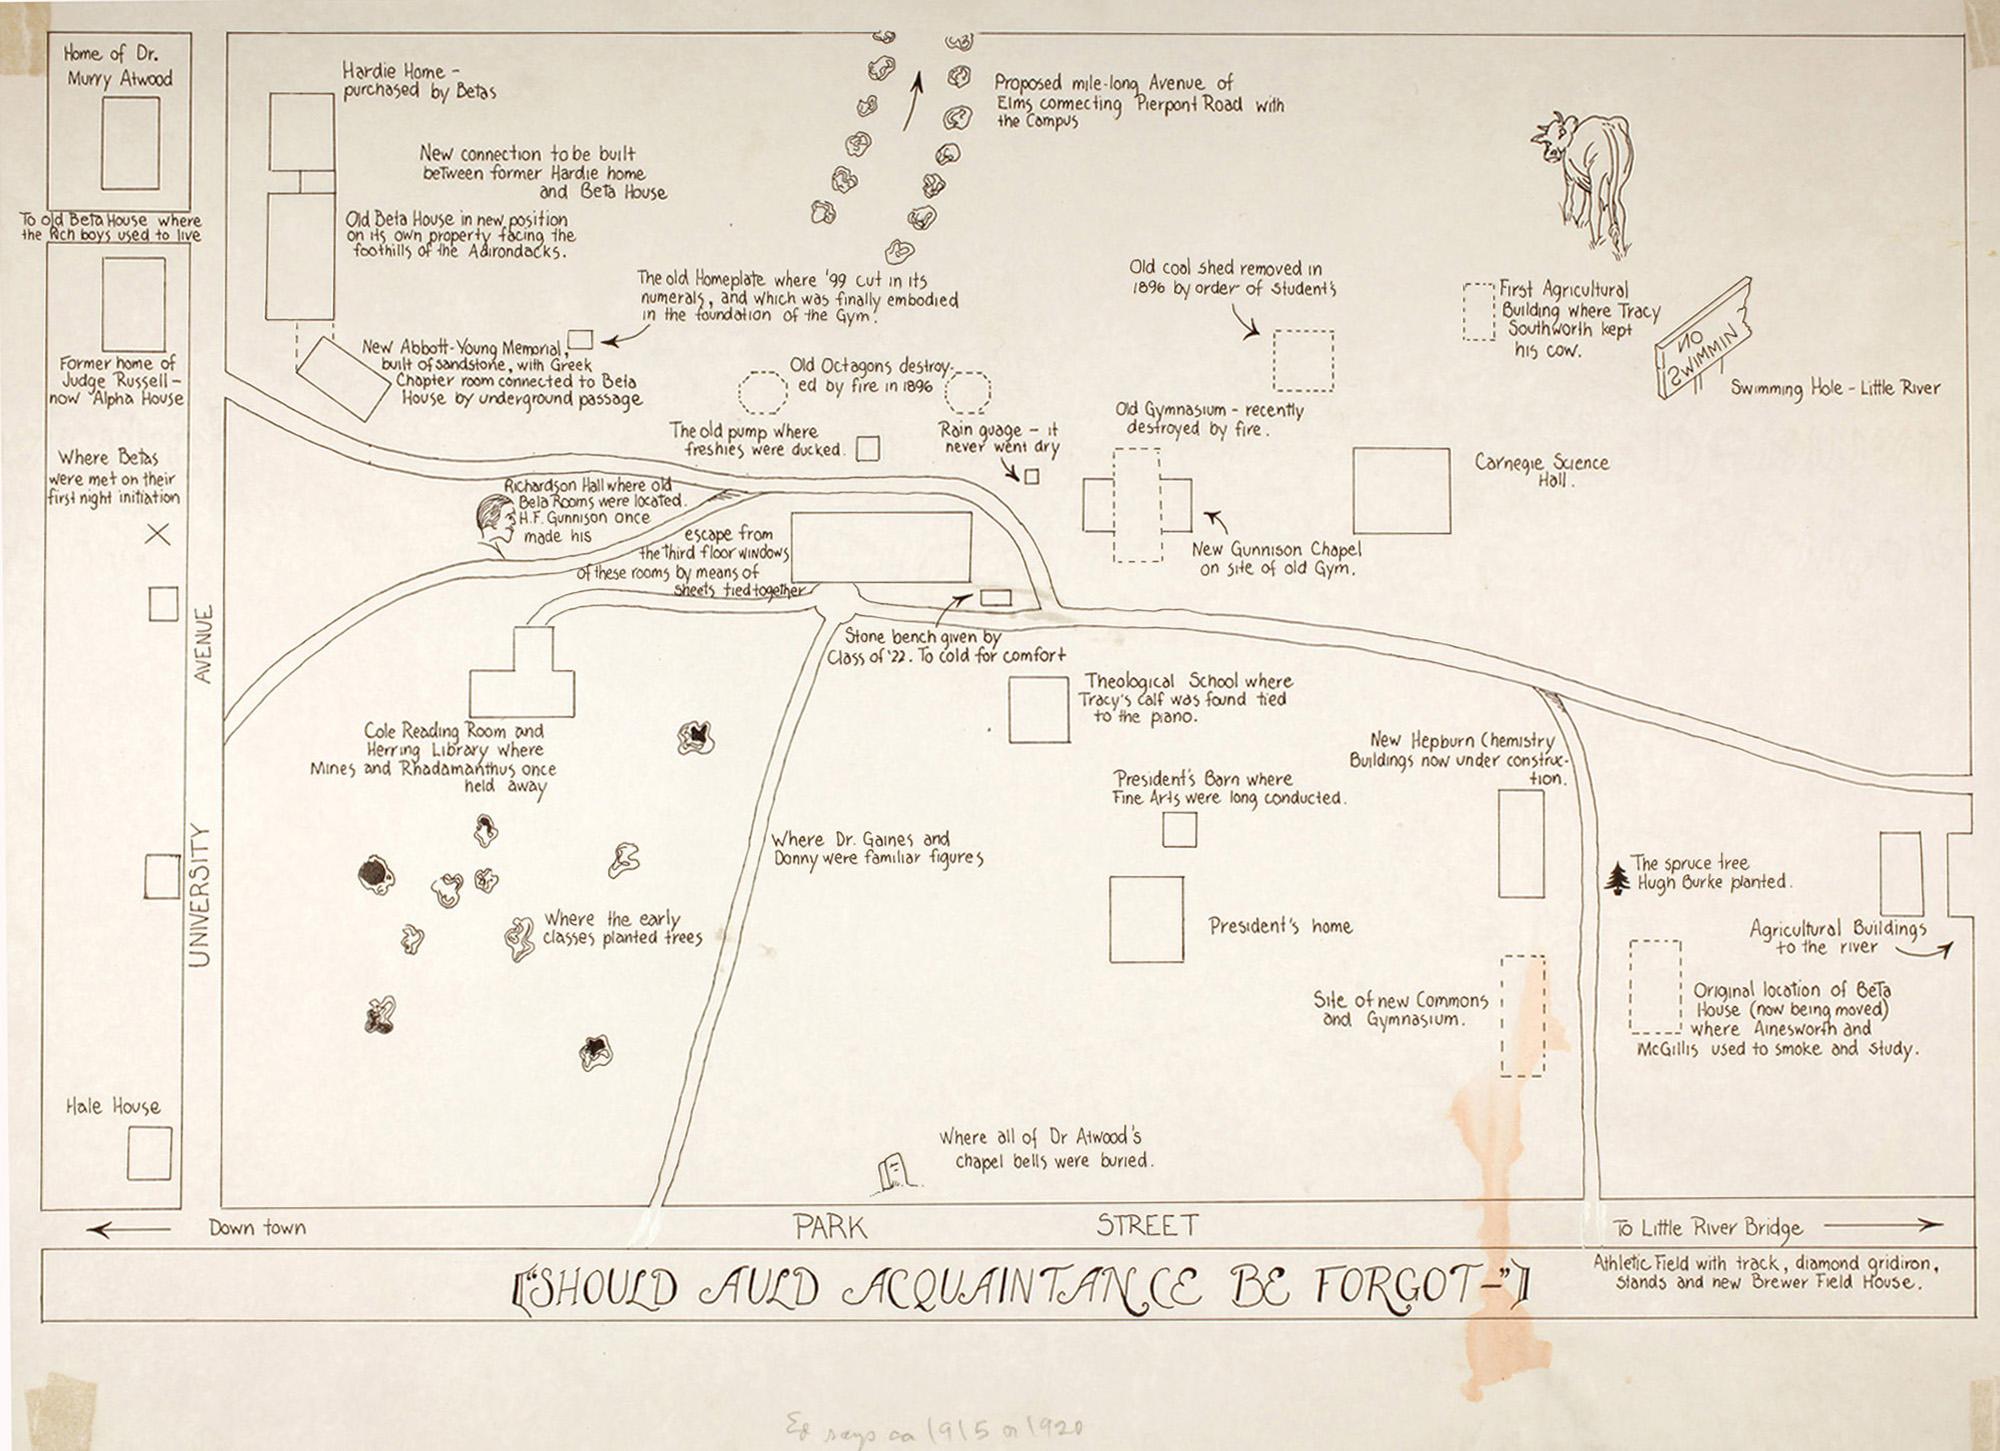 Home of Dr.
Murry Atwood
To old Beta House where
the Rich boys used to live
Former home of
Judge Russell –
now Alpha House
Where Betas
were met on their
first night initiation
Hale House
UNIVERSITY AVENUE
Hardie Home –
purchased by Betas
New connection to be built
between former Hardie home
and Beta House
Old Beta House in new position
on its own property facing the
foothills of the Adirondacks.
The old Homeplate where '99 cut in its
numerals, and which was finally embodied
in the foundation of the Gym.
New Abbott-Young Memorial,
built of sandstone, with Greek
Chapter room connected to Beta
House by underground passage
Proposed mile-long Avenue of
Elms connecting Pierpont Road with
the Campus
Old coal shed removed in
1896 by order of students
First Agricultural
Building where Tracy
Southworth kept
his cow.
NO
SWIMMIN
Swimming Hole – Little River
Old Octagons destroy-
ed by fire in 1896
The old pump where
freshies were ducked.
Rain guage – it
never went dry
Old Gymnasium – recently
destroyed by fire.
Carnegie Science
Hall.
New Gunnison Chapel
on site of old Gym.
Richardson Hall where old
Beta Rooms were located.
H.F. Gunnison once
made his
escape from
the third floor windows
of these rooms by means of
sheets tied together
Stone bench given by
Class of '22. To cold for comfort
Theological School where
Tracy's calf was found tied
to the piano.
Cole Reading Room and
Herring Library where
Mines and Rhadamanthus once
held away
New Hepburn Chemistry
Buildings now under construc-
tion.
President's Barn where
Fine Arts were long conducted.
Where Dr. Gaines and
Donny were familiar figures
The spruce tree
Hugh Burke planted.
Where the early
classes planted trees
President's home
Agricultural Buildings
to the river
Site of new Commons
and Gymnasium.
Original location of Beta
House (now being moved)
where Ainesworth and
McGillis used to smoke and study.
Where all of Dr Atwood's
chapel bells were buried.
Down town
PARK STREET
To Little River Bridge
("SHOULD AULD ACQUAINTANCE BE FORGOT–")
Athletic Field with track, diamond gridiron,
stands and new Brewer Field House.
Ed says ca 1915 or 1920